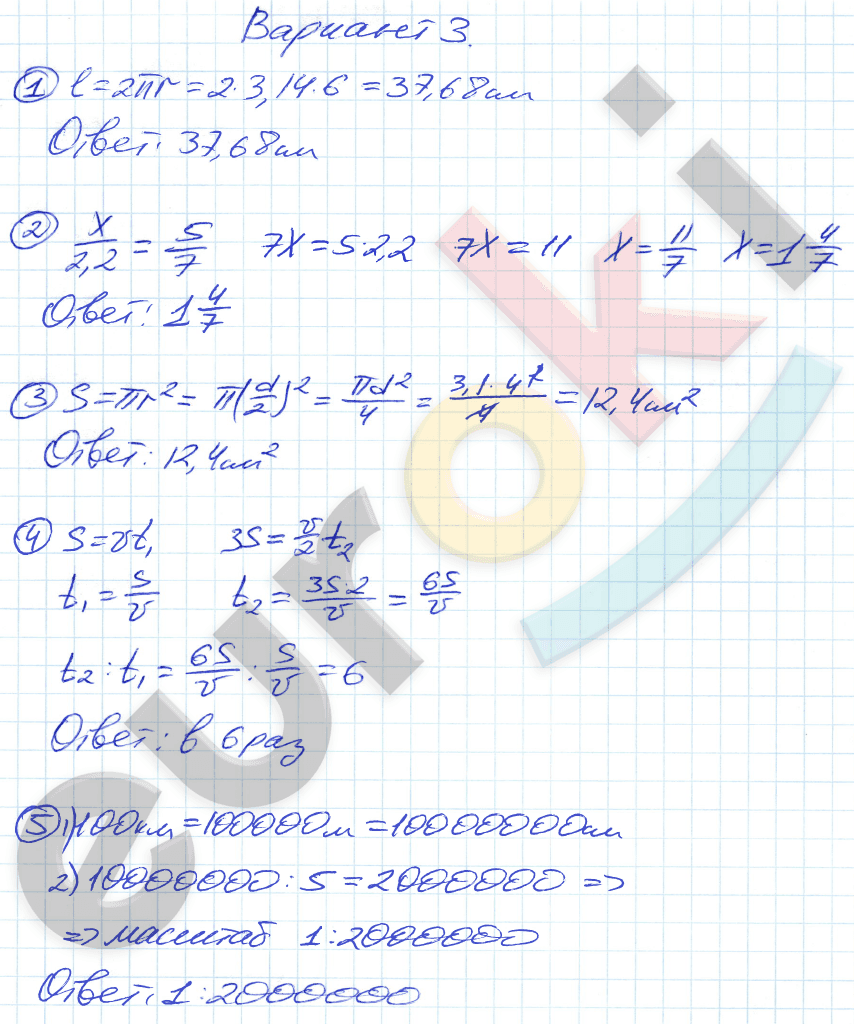 Вариант 3.
① l=2πr=2·3,14·6=37,68см
Ответ: 37,68см
② x/2,2 = 5/7 7x=5·2,2 7x=11 x=11/7 x=1 4/7
Ответ: 1 4/7
③ S=πr²= π(d/2)²= πd²/4 = 3,1·4²/4 =12,4см²
Ответ: 12,4см²
④ S=vt₁ 3S=v/2 t₂
t₁=S/v t₂=3S·2/v=6S/v
t₂:t₁=6S/v:S/v=6
Ответ: в 6 раз
⑤ 1)100км=100000м=10000000см
2)10000000:5=2000000 =>
=> масштаб 1:2000000
Ответ: 1:2000000
euroki